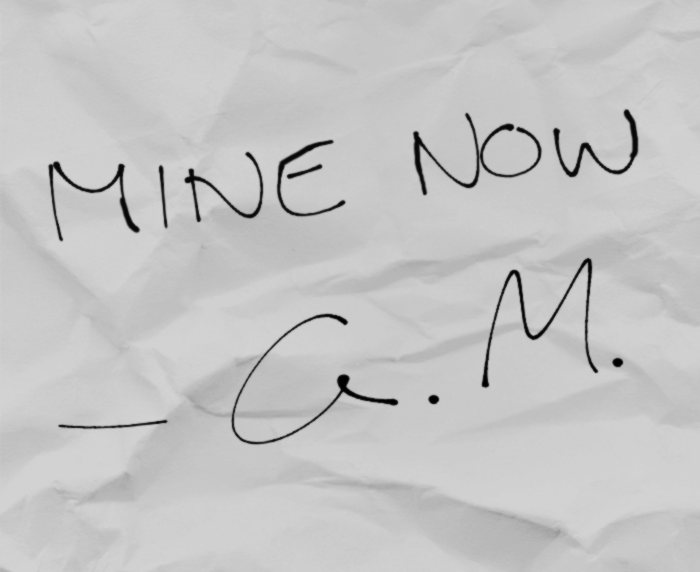 MINE NOW
— G. M.